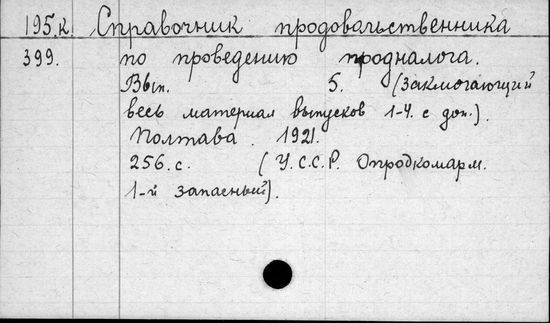 195.к. Справочник продовольственника
399. по проведению продналога.
Вып. 5. (Закмогающий
весь материал выпусков 1-4. с доп.).
Полтава. 1921.
256. с. (У.С.С.Р. Опродкомарм.
1-й запасный).